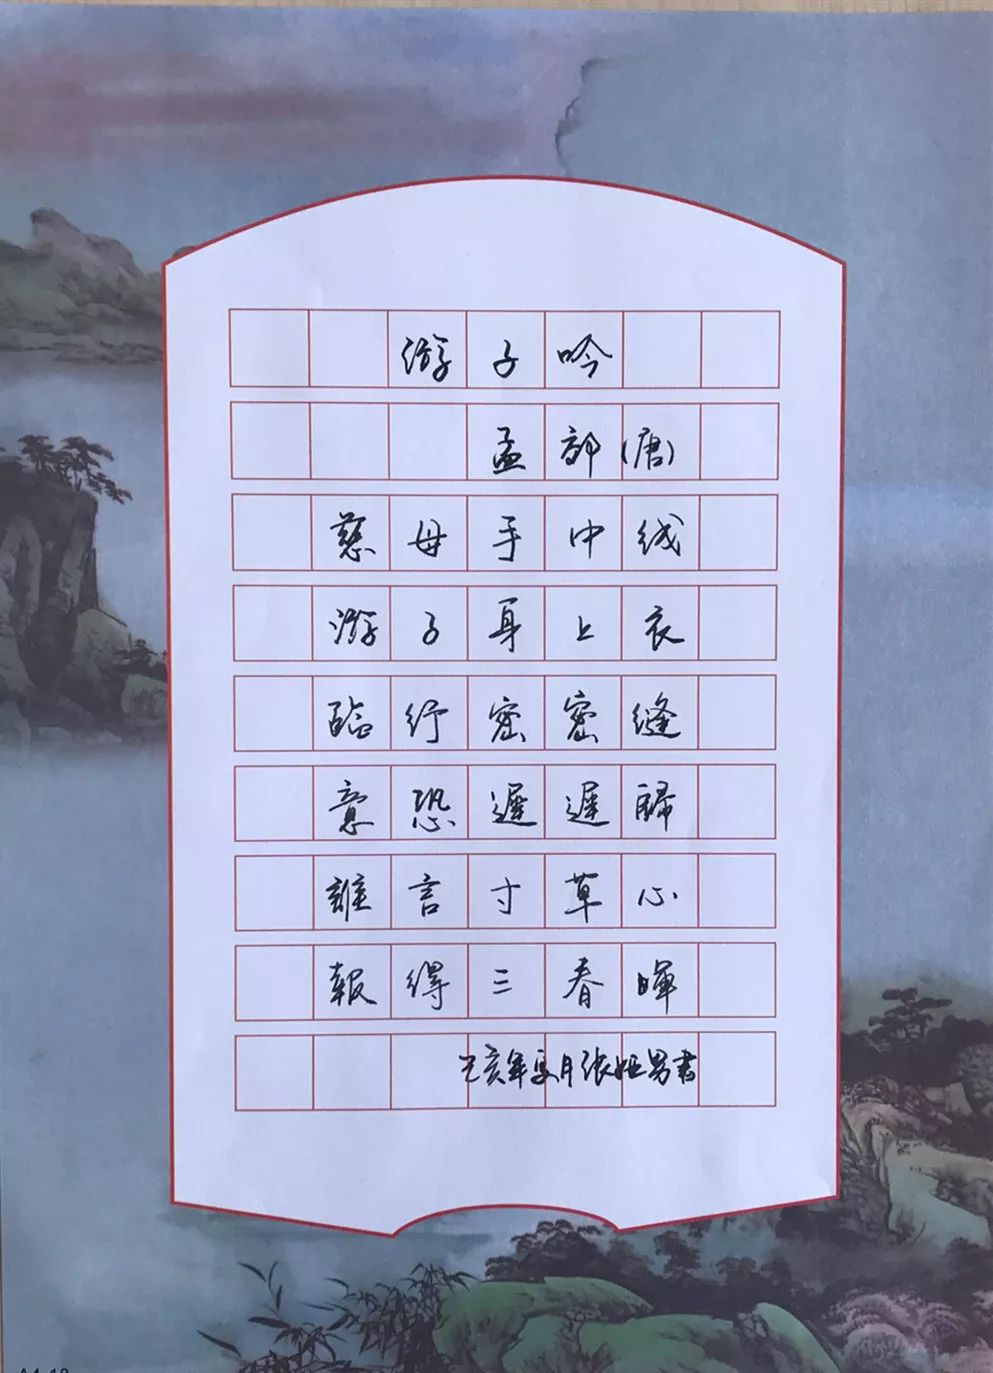 游子吟
孟郊(唐)
慈母手中线
游子身上衣
臨行密密缝
意恐遲遲歸
誰言寸草心
報得三春暉
乙亥年夏月张娅男書
A4-18